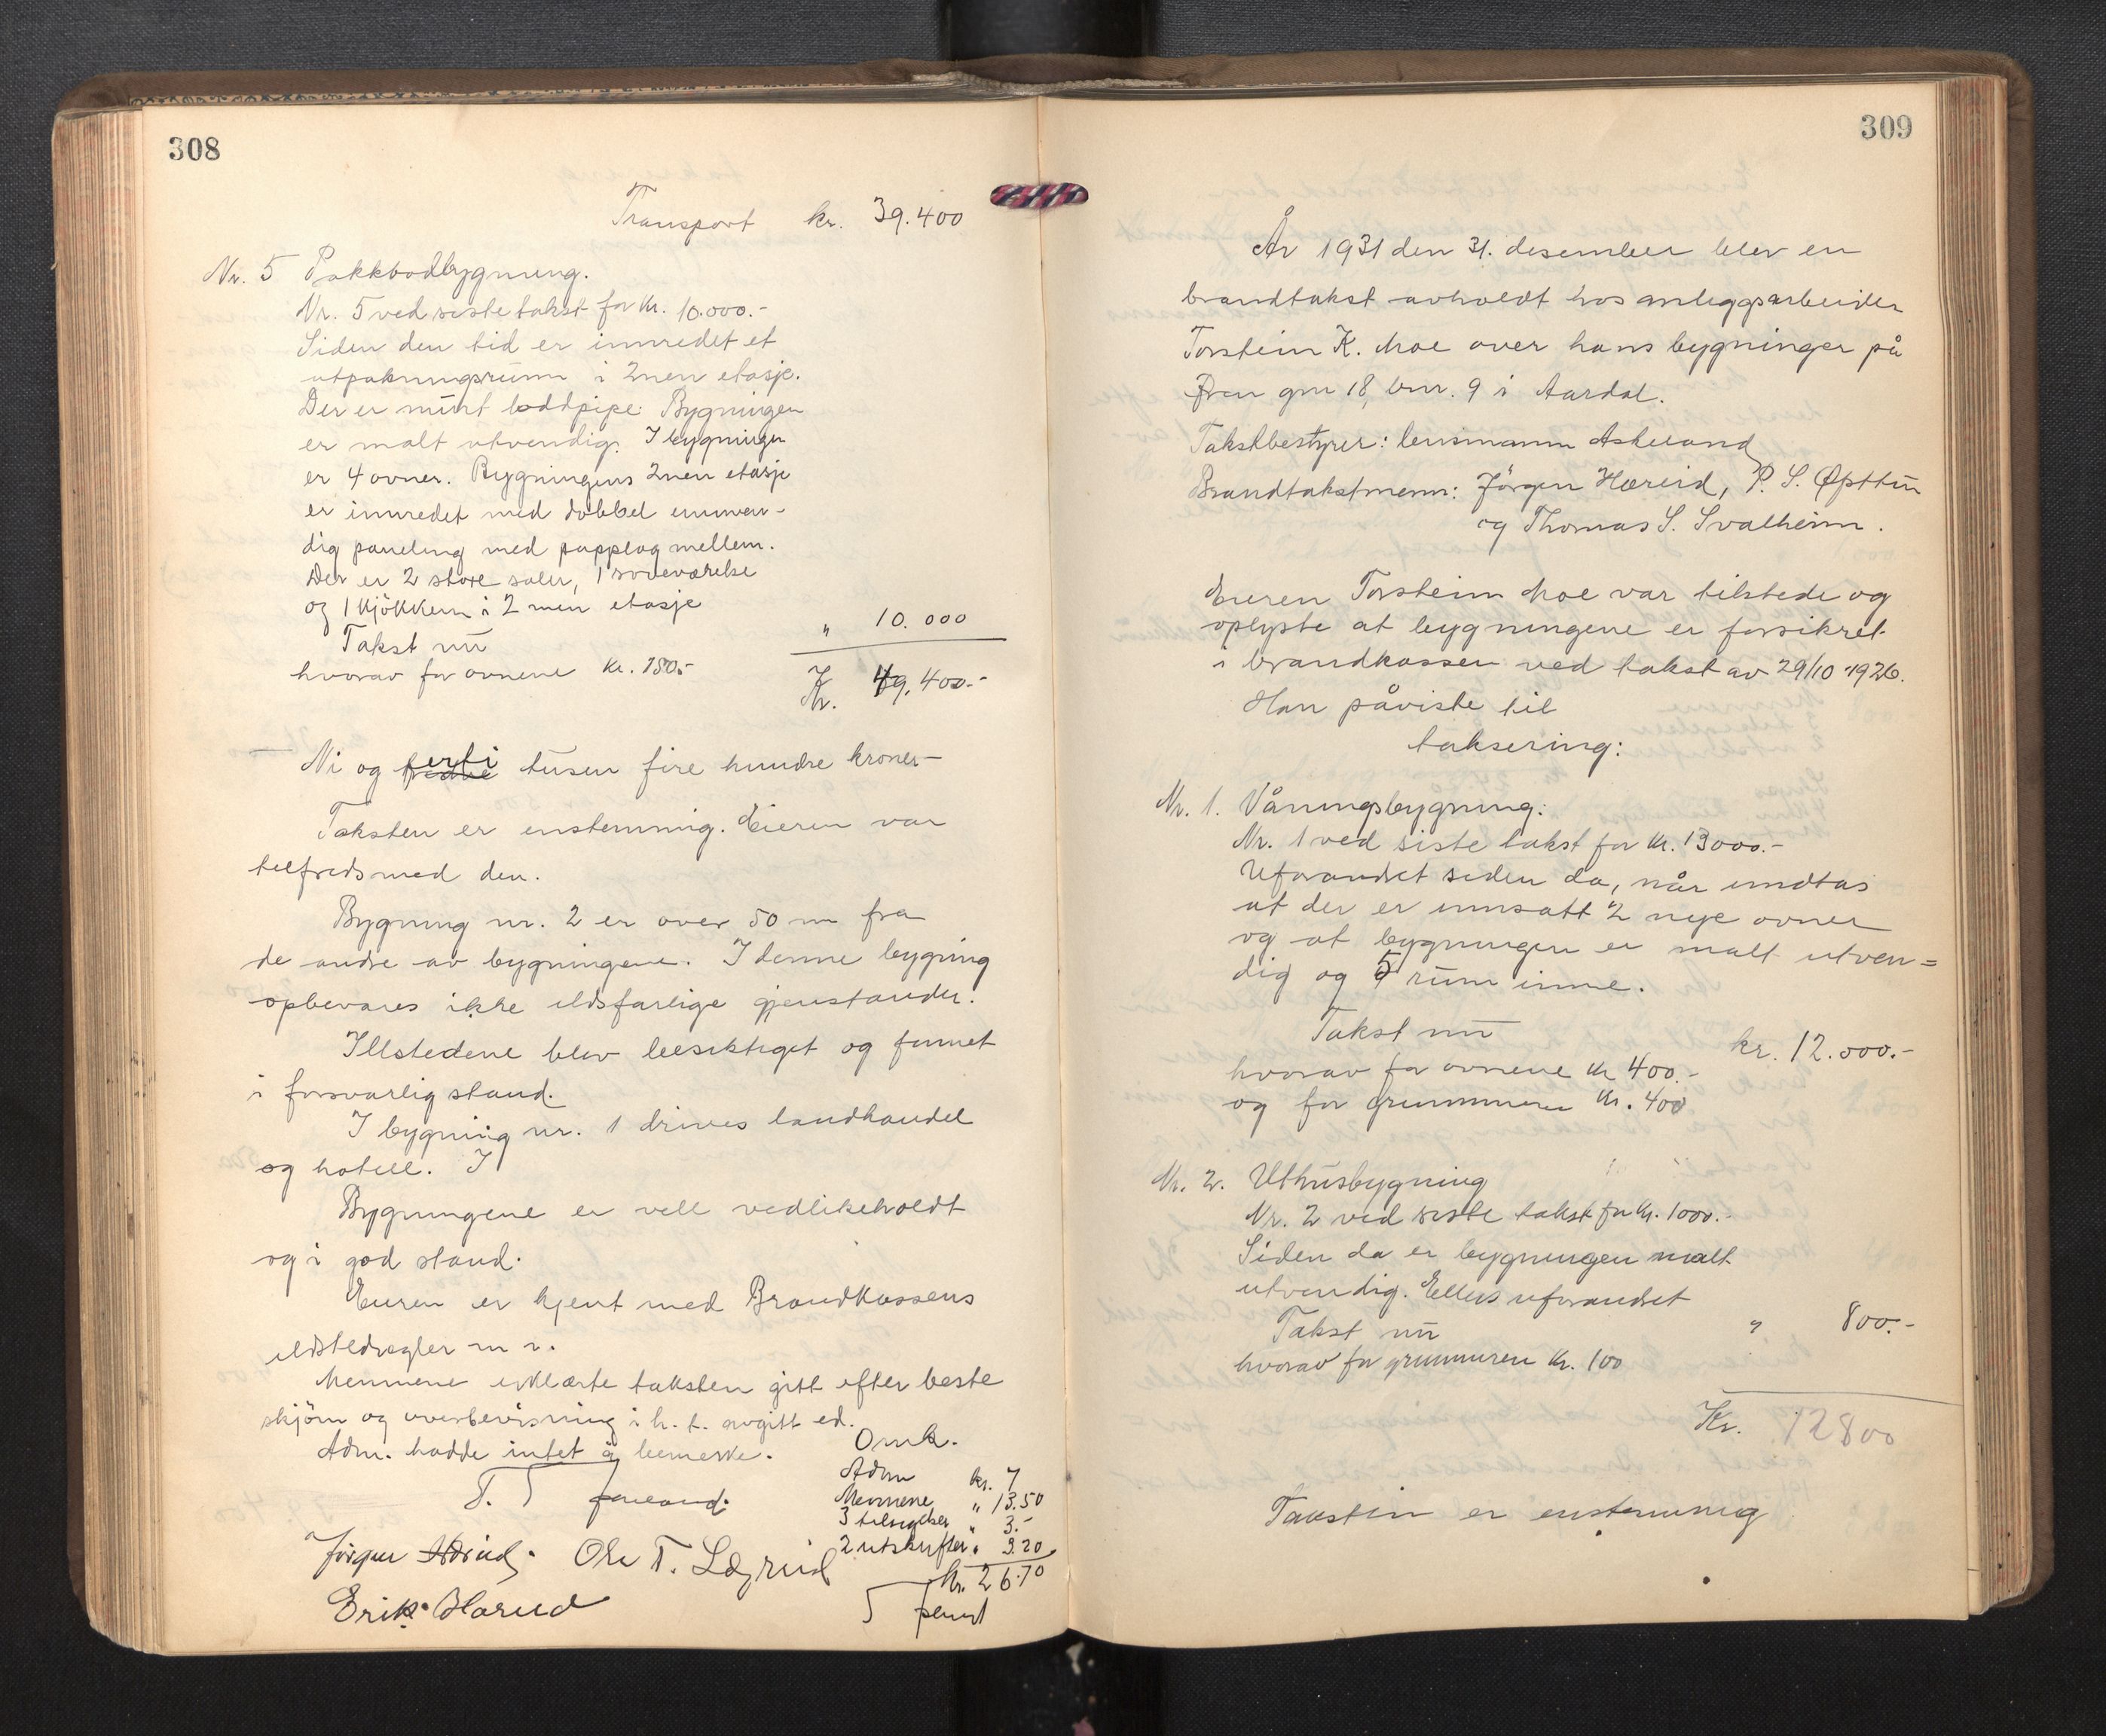 308
Transport kr. 39.400
Nr. 5 Pakkbodbygning.
Nr. 5 ved siste takst for kr. 10.000.-
Siden den tid er innredet et
utpakningsrum i 2nen etasje.
Der er murt loddpipe. Bygningen
er malt utvendig. I bygningen
er 4 ovner. Bygningens 2nen etasje
er innredet med dobbel innven-
dig paneling med papplag mellem.
Der er 2 store saler, 1 soveværelse
og 1 kjökken i 2nen etasje
Takst nu " 10.000
hvorav for ovnene kr. 180.- Kr. 49,400.-
Ni og førti tusen fire hundre kroner
Taksten er enstemmig. Eieren var
tilfreds med den.
Bygning nr. 2 er over 50 m fra
de andre av bygningene. I denne bygning
opbevares ikke ildsfarlige gjenstander.
Illstedene blev besiktiget og funnet
i forsvarlig stand.
I bygning nr. 1 drives landhandel
og hotell. I
Bygningene er vell vedlikeholdt
og i god stand.
Eieren er kjent med Brandkassens
ildstedregler m v.
Mennene erklærte taksten gitt efter beste
skjön og overbevisning i h. t. avgitt ed.
Adm. hadde intet å bemerke.
Omk.
Adm kr. 7
Mennene " 13.50
3 tilsigelser " 3.-
2 utskrifter " 3.20
kr. 26.70
Jörgen Hæreid. Ole T. Lægreid
Erik Hæreid
309
År 1931 den 31. desember blev en
brandtakst avholdt hos anleggsarbeider
Torstein K. Moe over hans bygninger på
gnr 18, bnr. 9 i Aardal.
Takstbestyrer: lensmann
Brandtakstmenn: Jörgen Hæreid, P. S. Øpttun
og Thomas S. Svalheim.
Eieren Torstein Moe var tilstede og
oplyste at bygningene er forsikret
i brandkassen ved takst av 29/10 1926.
Han påviste til
taksering:
Nr. 1. Våningsbygning:
Nr. 1 ved siste takst for kr. 13000.-
Uforandret siden da, når undtas
at der er innsatt 2 nye ovner
og at bygningen er malt utven=
dig og 5 rum inne.
Takst nu kr. 12.000.-
hvorav for ovnene kr 400.-
og for grunnmuren kr. 400
Nr. 2. Uthusbygning
Nr. 2 ved siste takst for kr. 1000.-
Siden da er bygningen malt
utvendig. Ellers uforandret
Takst nu " 800.-
hvorav for grunnmuren kr. 100
Kr. 12800
Taksten er enstemmig